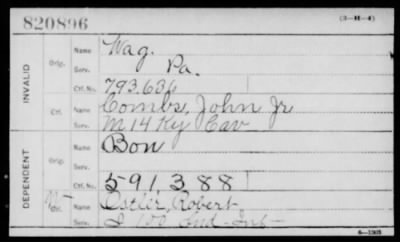 820896
(3-H-4)
INVALID
Orig.
Name Wag.
Serv. Pa.
Ctf. No. 793.636
Ctf.
Name Combs, John Jr
Serv. M 14 Ky Cav
DEPENDENT
Orig.
Name Bon
Serv.
Ctf. No. 591388
Ctf.
Name Ostler, Robert
Serv. I 100 Ind. Inf